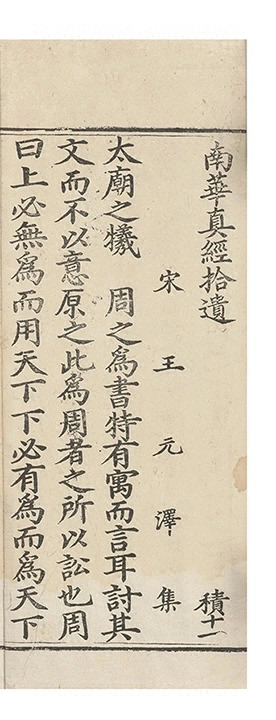 南華真經拾遺 積十一
宋王元澤集
太廟之犧 周之為書特有寓而言耳討其
文而不以意原之此為周者之所以訟也周
曰上必無為而用天下下必有為而為天下